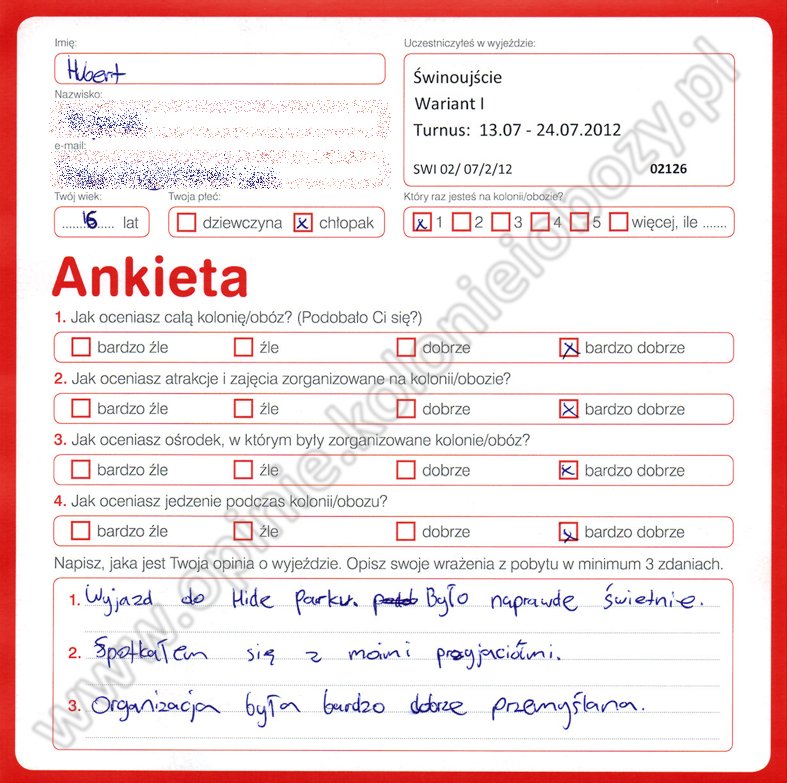 Imię:
Hubert
Nazwisko:
e-mail:
Twój wiek:
16 lat
Twoja płeć:
dziewczyna x chłopak
Uczestniczyłeś w wyjeździe:
Świnoujście
Wariant I
Turnus: 13.07 - 24.07.2012
SWI 02/ 07/2/12 02126
Który raz jesteś na kolonii/obozie?
x 1 2 3 4 5 więcej, ile .......
Ankieta
1. Jak oceniasz całą kolonię/obóz? (Podobało Ci się?)
bardzo źle źle dobrze x bardzo dobrze
2. Jak oceniasz atrakcje i zajęcia zorganizowane na kolonii/obozie?
bardzo źle źle dobrze x bardzo dobrze
3. Jak oceniasz ośrodek, w którym były zorganizowane kolonie/obóz?
bardzo źle źle dobrze x bardzo dobrze
4. Jak oceniasz jedzenie podczas kolonii/obozu?
bardzo źle źle dobrze x bardzo dobrze
Napisz, jaka jest Twoja opinia o wyjeździe. Opisz swoje wrażenia z pobytu w minimum 3 zdaniach.
1. Wyjazd do Hide Parku. Było naprawdę świetnie.
2. Spotkałem się z moimi przyjaciółmi.
3. Organizacja była bardzo dobrze przemyślana.
www.opinie.kolonieiobozy.pl